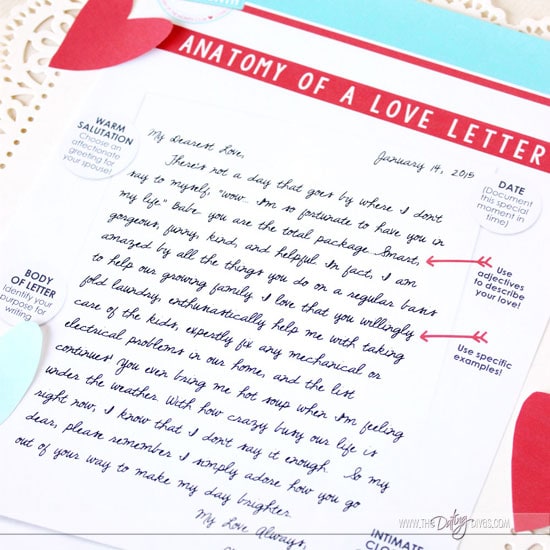 ANATOMY OF A LOVE LETTER
WARM
SALUTATION
Choose an
affectionate
greeting for
your spouse!
My Dearest Love,
January 14, 2015
DATE
(Document
this special
moment in
time)
There's not a day that goes by where I don't
say to myself, "wow. I'm so fortunate to have you in
my life." Babe you are the total package. Smart,
gorgeous, funny, kind, and helpful. In fact, I am
amazed by all the things you do on a regular basis
to help our growing family. I love that you willingly
fold laundry, enthusiastically help me with taking
care of the kids, expertly fix any mechanical or
electrical problems in our home, and the list
continues! You even bring me hot soup when I'm feeling
under the weather. With how crazy busy our life is
right now, I know that I don't say it enough. So my
dear, please remember I simply adore how you go
out of your way to make my day brighter.
My Love Always,
Use
adjectives
to describe
your love!
BODY
OF LETTER
Identify your
purpose for
writing
Use specific
examples!
INTIMATE
WWW.THE Dating DIVAS.COM